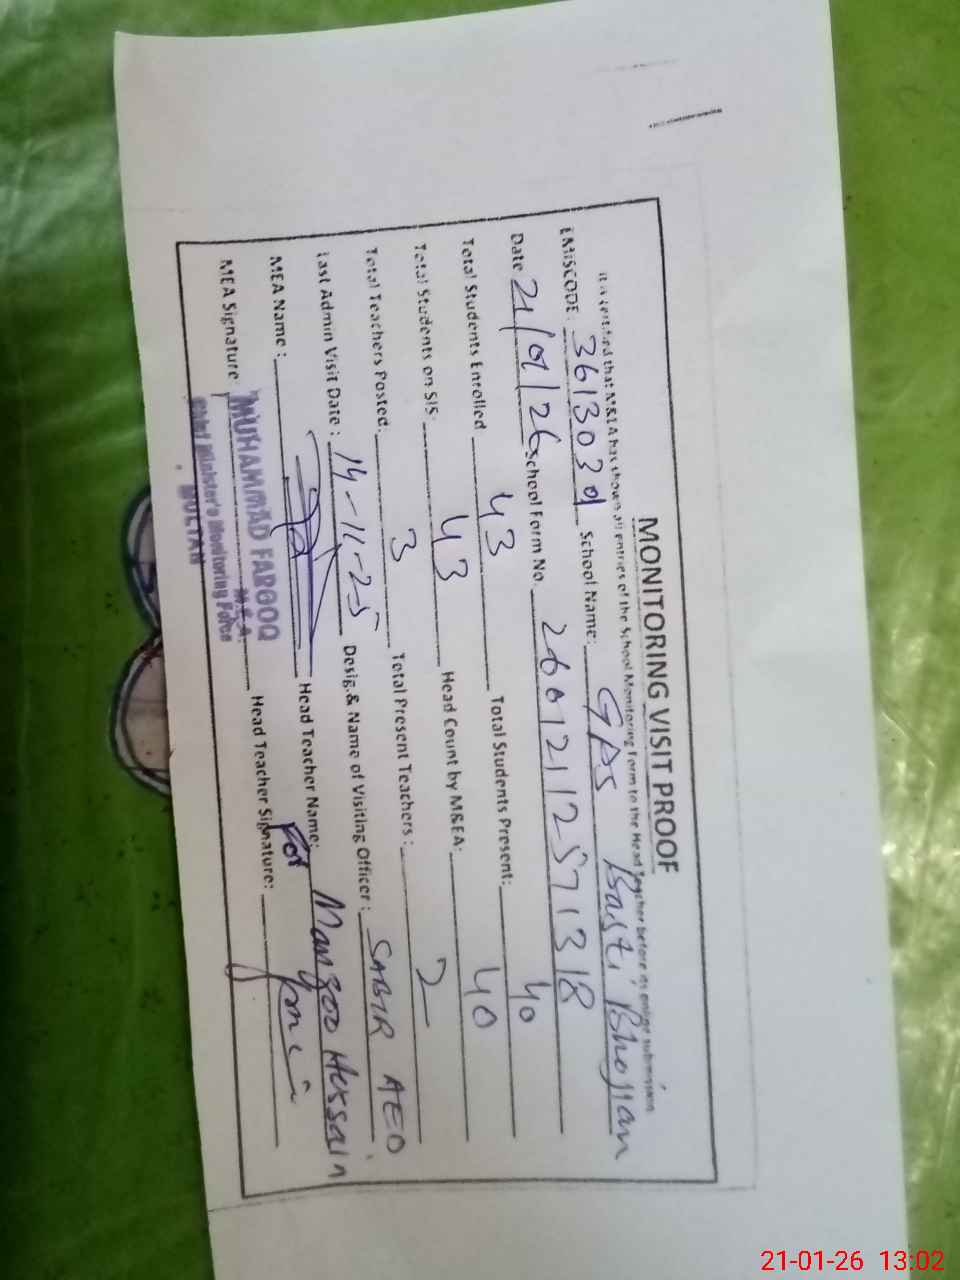 MONITORING VISIT PROOF
It is certified that M&EA has shown all entries of the School Monitoring Form to the Head Teacher before its online submission
EMISCODE: 36130301 School Name: GPS Basti Bhojian
Date 21/01/26 School Form No. 2601211257318
Total Students Enrolled 43 Total Students Present: 40
Total Students on SIS: 43 Head Count by M&EA: 40
Total Teachers Posted: 3 Total Present Teachers: 2
Last Admin Visit Date: 14-11-25 Desig.& Name of Visiting Officer: SABIR AEO
MEA Name: Head Teacher Name: Manzoo Hussain
MEA Signature: Head Teacher Signature: For
MUHAMMAD FAROOQ
M.E.A
Chief Minister's Monitoring Force
MULTAN
21-01-26 13:02